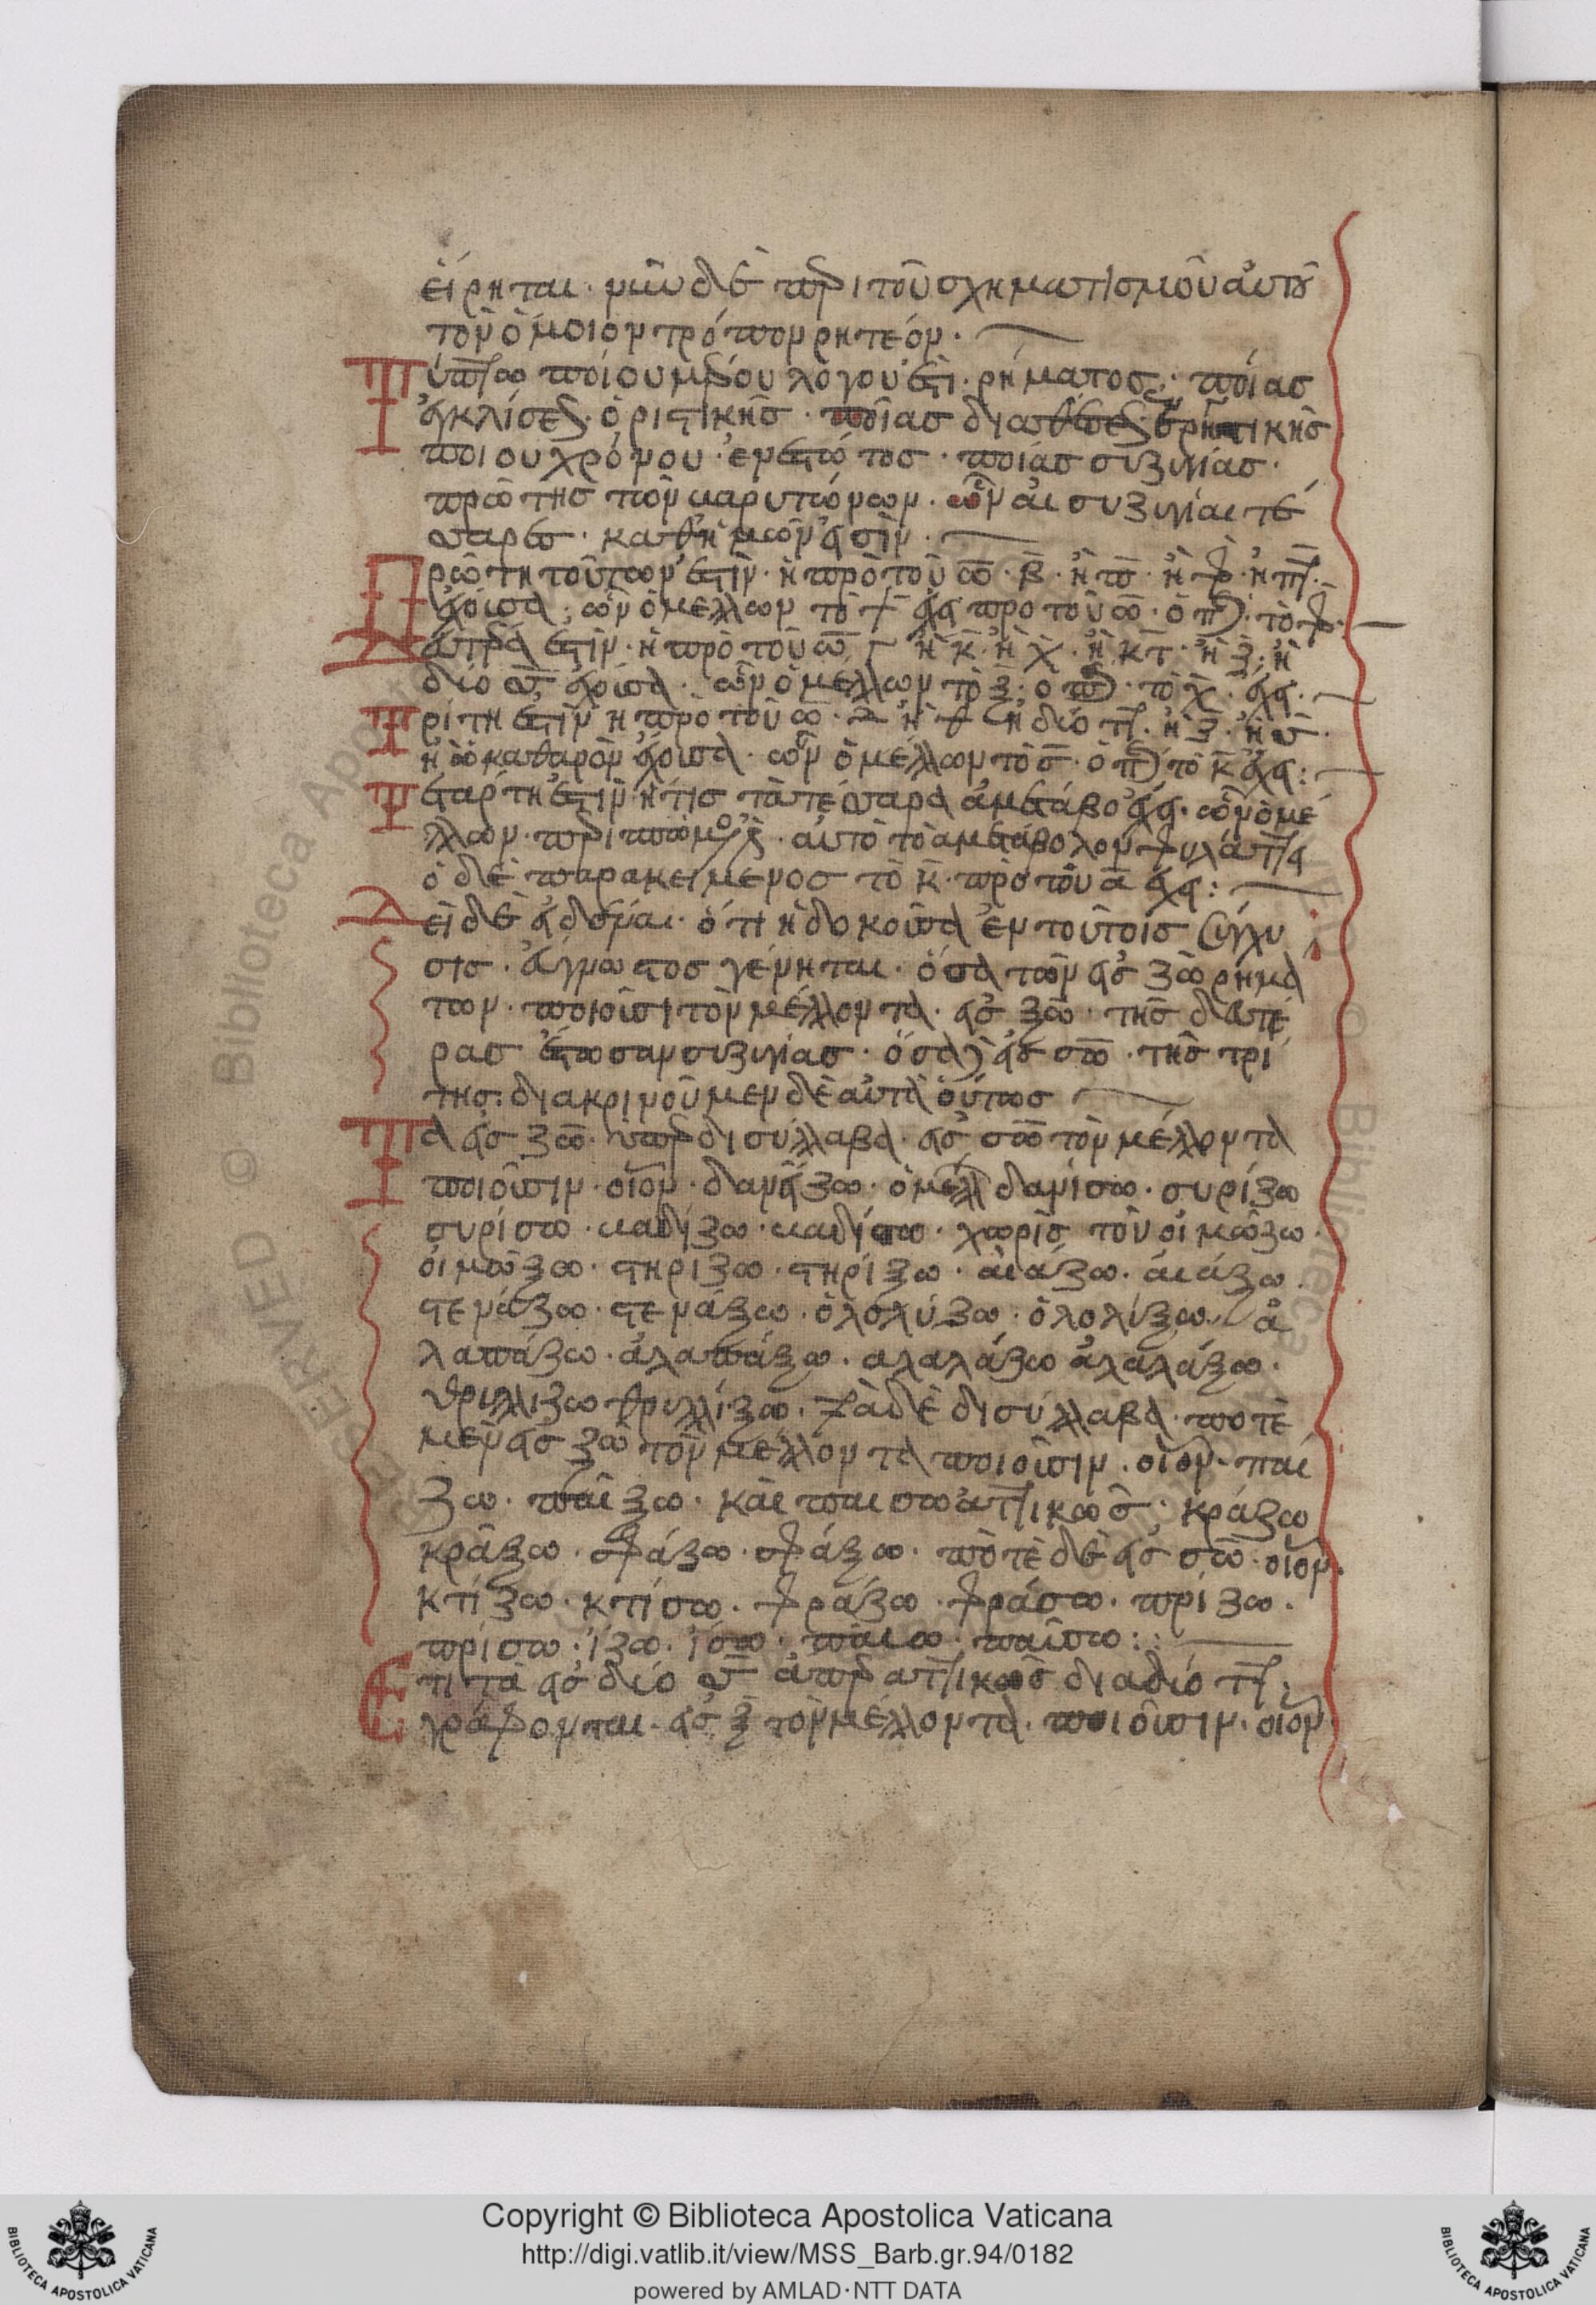 εἴρηται· νῦν δὲ περὶ τοῦ σχηματισμοῦ αὐτοῦ
τὸν ὅμοιον τρόπον ῥητέον·
Τύπτω ποίου μέρους λόγου ἐστί· ῥήματος· ποίας
ἐγκλίσεως· ὁριστικῆς· ποίας διαθέσεως
ποίου χρόνου· ἐνεστῶτος· ποίας συζυγίας·
πρώτης τῶν βαρυτόνων· ὧν αἱ συζυγίαι τέσ
σαρες· καθ' ἡμῶν εἰσὶν·
Πρώτη τούτων ἐστὶν· ἡ πρὸ τοῦ ω· β· ἢ π· ἢ φ· ἢ πτ·
ἔχουσα· ὧν ὁ μέλλων τὸ ψ ἔχει πρὸ τοῦ ω· ὁ π· τὸ φ·
Δευτέρα ἐστὶν· ἡ πρὸ τοῦ ω γ ἢ κ· ἢ χ· ἢ κτ· ἢ ξ· ἢ
δύο σσ ἔχουσα· ὧν ὁ μέλλων τὸ ξ· ὁ π· τὸ χ· ἔχει·
Τρίτη ἐστὶν ἡ πρὸ τοῦ ω· δ ἢ θ ἢ δύο ττ· ἢ ζ· ἢ σσ·
ἢ ω καθαρὸν ἔχουσα· ὧν ὁ μέλλων τὸ σ· ὁ π τὸ κ ἔχει:
Τετάρτη ἐστὶν· ἥτις τὰ τέσσαρα ἀμετάβο ἔχει· ὧν ὁ μέ
λλων· περισπώμενος· αὐτὸ τὸ ἀμετάβολον φυλάττει
ὁ δὲ παρακείμενος τὸ κ· πρὸ τοῦ α ἔχει:
Δεῖ δὲ εἰδέναι· ὅτι ἡ δοκοῦσα ἐν τούτοις σύγχυ
σις· εὔγνωστος γένηται· ὅσα τῶν εἰς ζω ῥημά
των· ποιοῦσι τὸν μέλλοντα· εἰς ξω· τῆς δευτέ
ρας ἔστωσαν συζυγίας· ὅσα δὲ εἰς σω· τῆς τρί
της· διακρινοῦμεν δὲ αὐτὰ οὕτως
Τὰ εἰς ζω· ὑπερδισύλλαβα· εἰς σω τὸν μέλλοντα
ποιοῦσιν· οἷον· δανείζω· ὁ μέλλ δανίσω· συρίζω
συρίσω· βαδίζω· βαδίσω· χωρὶς τοῦ οἰμώζω·
οἰμώξω· στηρίζω· στηρίξω· αἰάζω· αἰάξω·
στενάζω· στενάξω· ὀλολύζω· ὀλολύξω· ἀ
λαπάζω· ἀλαπάξω· αλαλάζω ἀλαλάξω·
θρυλλίζω θρυλλίξω· τὰ δὲ δισύλλαβα· ποτὲ
μὲν εἰς ξω τὸν μέλλοντα ποιοῦσιν· οἷον· παί
ζω· παίξω· καὶ παίσω ἀττικῶς· κράζω
κράξω· σφάζω· σφάξω· πὸτὲ δὲ εἰς σω· οἷον·
κτίζω· κτίσω· φράζω· φράσω· πρίζω·
πρίσω· ἵζω· ἵσω· παίω· παίσω:
Ἔτι τὰ εἰς δύο σσ ἅπερ ἀττικῶς διὰ δύο ττ·
γράφονται· εἰς ξ τὸν μέλλοντα· ποιοῦσιν· οἷον·
Copyright © Biblioteca Apostolica Vaticana
http://digi.vatlib.it/view/MSS_Barb.gr.94/0182
powered by AMLAD·NTT DATA
BIBLIOTECA APOSTOLICA VATICANA
BIBLIOTECA APOSTOLICA VATICANA